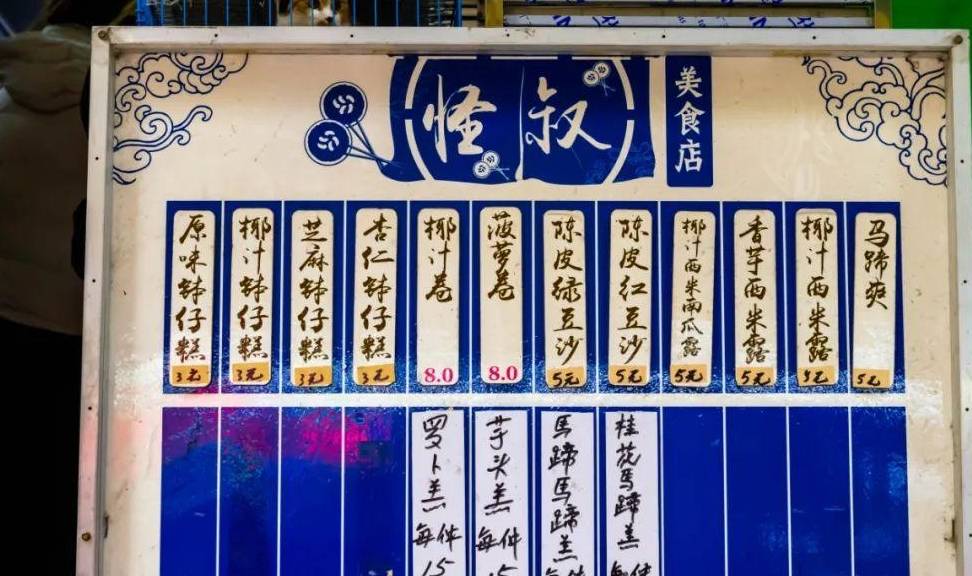 怪叔
美食店
原味钵仔糕
3元
椰汁钵仔糕
3元
芝麻钵仔糕
3元
杏仁钵仔糕
3元
椰汁卷
8.0
菠萝卷
8.0
陈皮绿豆沙
5元
陈皮红豆沙
5元
椰汁西米南瓜露
5元
香芋西米露
5元
椰汁西米露
5元
马蹄爽
5元
罗卜羔
每件
15
芋头羔
每件
15
馬蹄馬蹄羔
每件
桂花馬蹄羔
每件